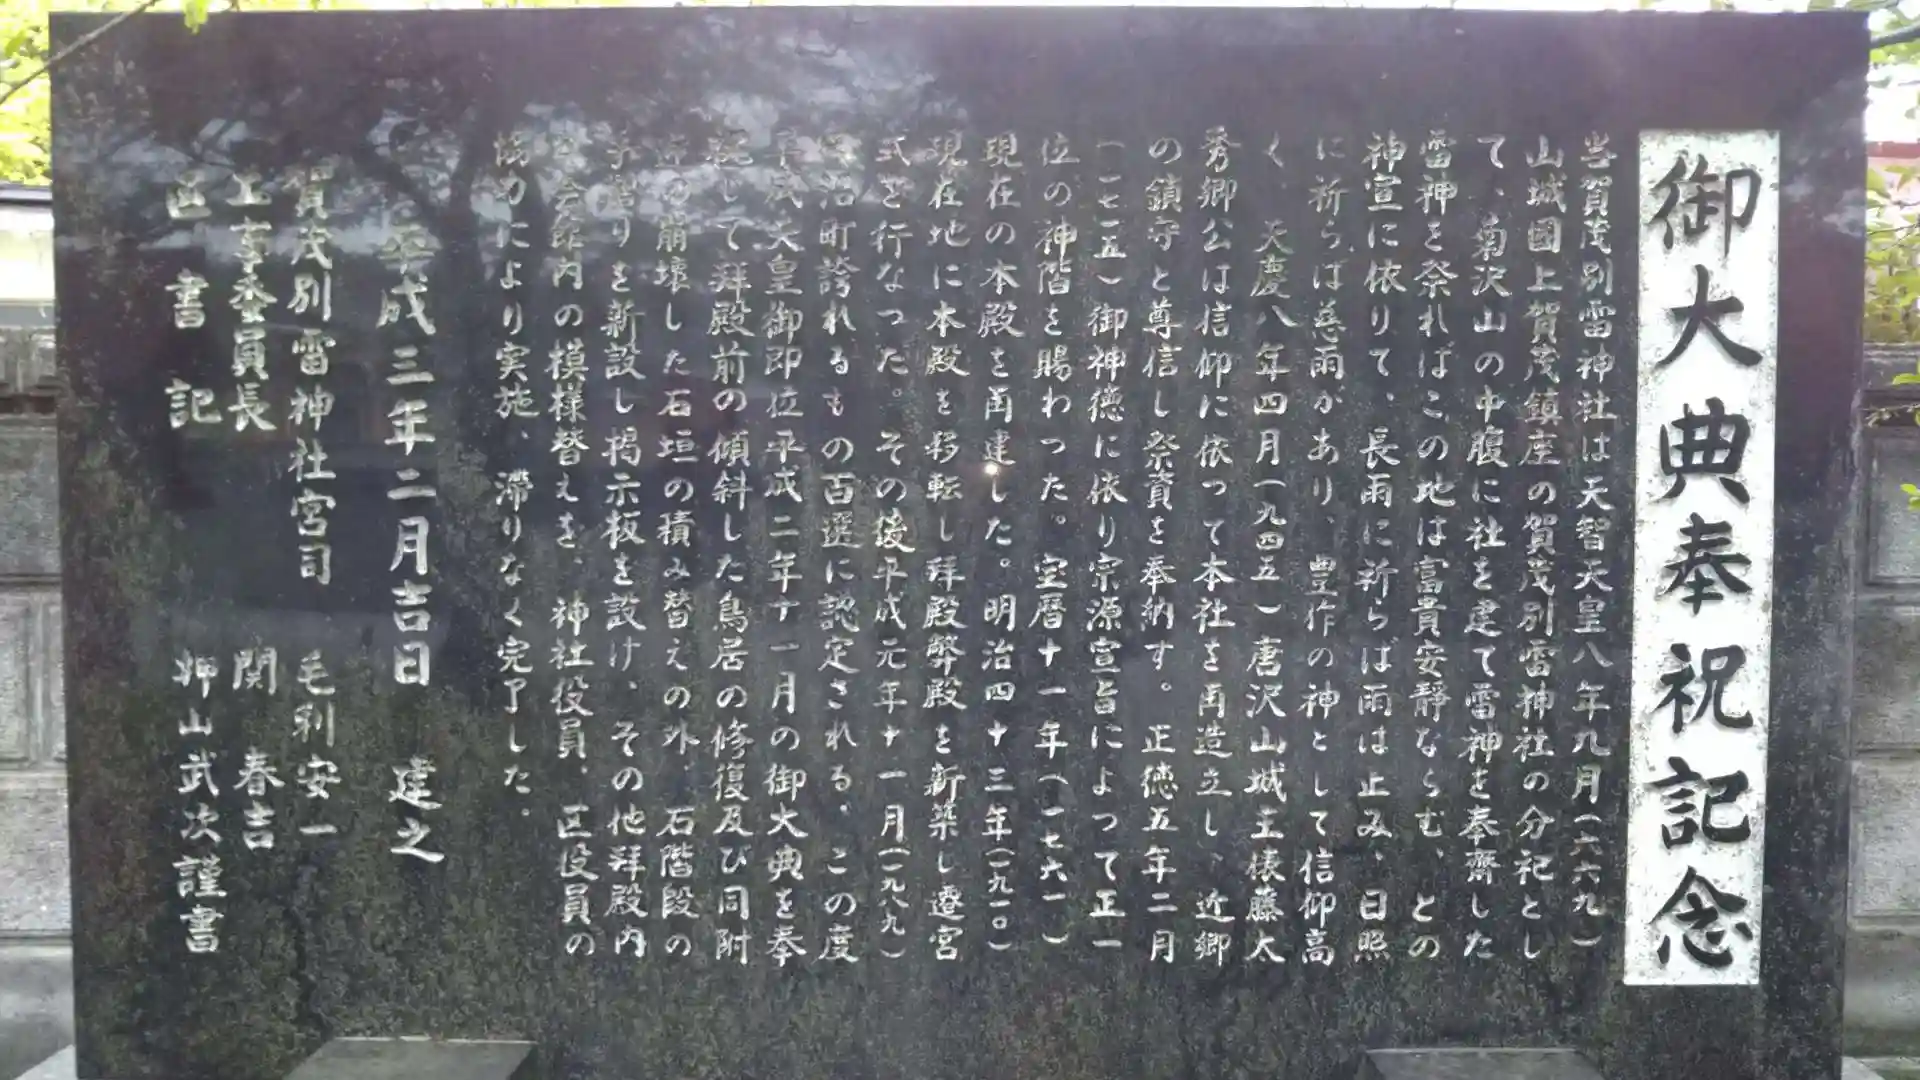 御大典奉祝記念
当賀茂別雷神社は天智天皇八年九月(六六九)
山城國上賀茂鎮座の賀茂別雷神社の分祀とし
て、菊沢山の中腹に社を建て雷神を奉齋した
雷神を祭ればこの地は富貴安靜ならむ、との
神宣に依りて、長雨に祈らば雨は止み、日照
に祈らば慈雨があり、豊作の神として信仰高
く、天慶八年四月(九四五)唐沢山城主俵藤太
秀郷公は信仰に依って本社を再造立し、近郷
の鎮守と尊信し祭資を奉納す。正徳五年二月
(一七一五)御神徳に依り宗源宣旨によって正一
位の神階を賜わった。宝暦十一年(一七六一)
現在の本殿を再建した。明治四十三年(一九一〇)
現在地に本殿を移転し拝殿幣殿を新築し遷宮
式を行なった。その後平成元年十一月(一九八九)
治町誇れるもの百選に認定される。この度
平成天皇御即位平成二年十一月の御大典を奉
祝して拝殿前の傾斜した鳥居の修復及び同附
近の崩壊した石垣の積み替えの外、石階段の
手摺りを新設し掲示板を設け、その他拝殿内
会館内の模様替えを、神社役員、区役員の
協力により実施、滞りなく完了した。
平成三年二月吉日 建之
賀茂別雷神社宮司 毛利安一
工事委員長 関 春吉
区書記 押山武次謹書